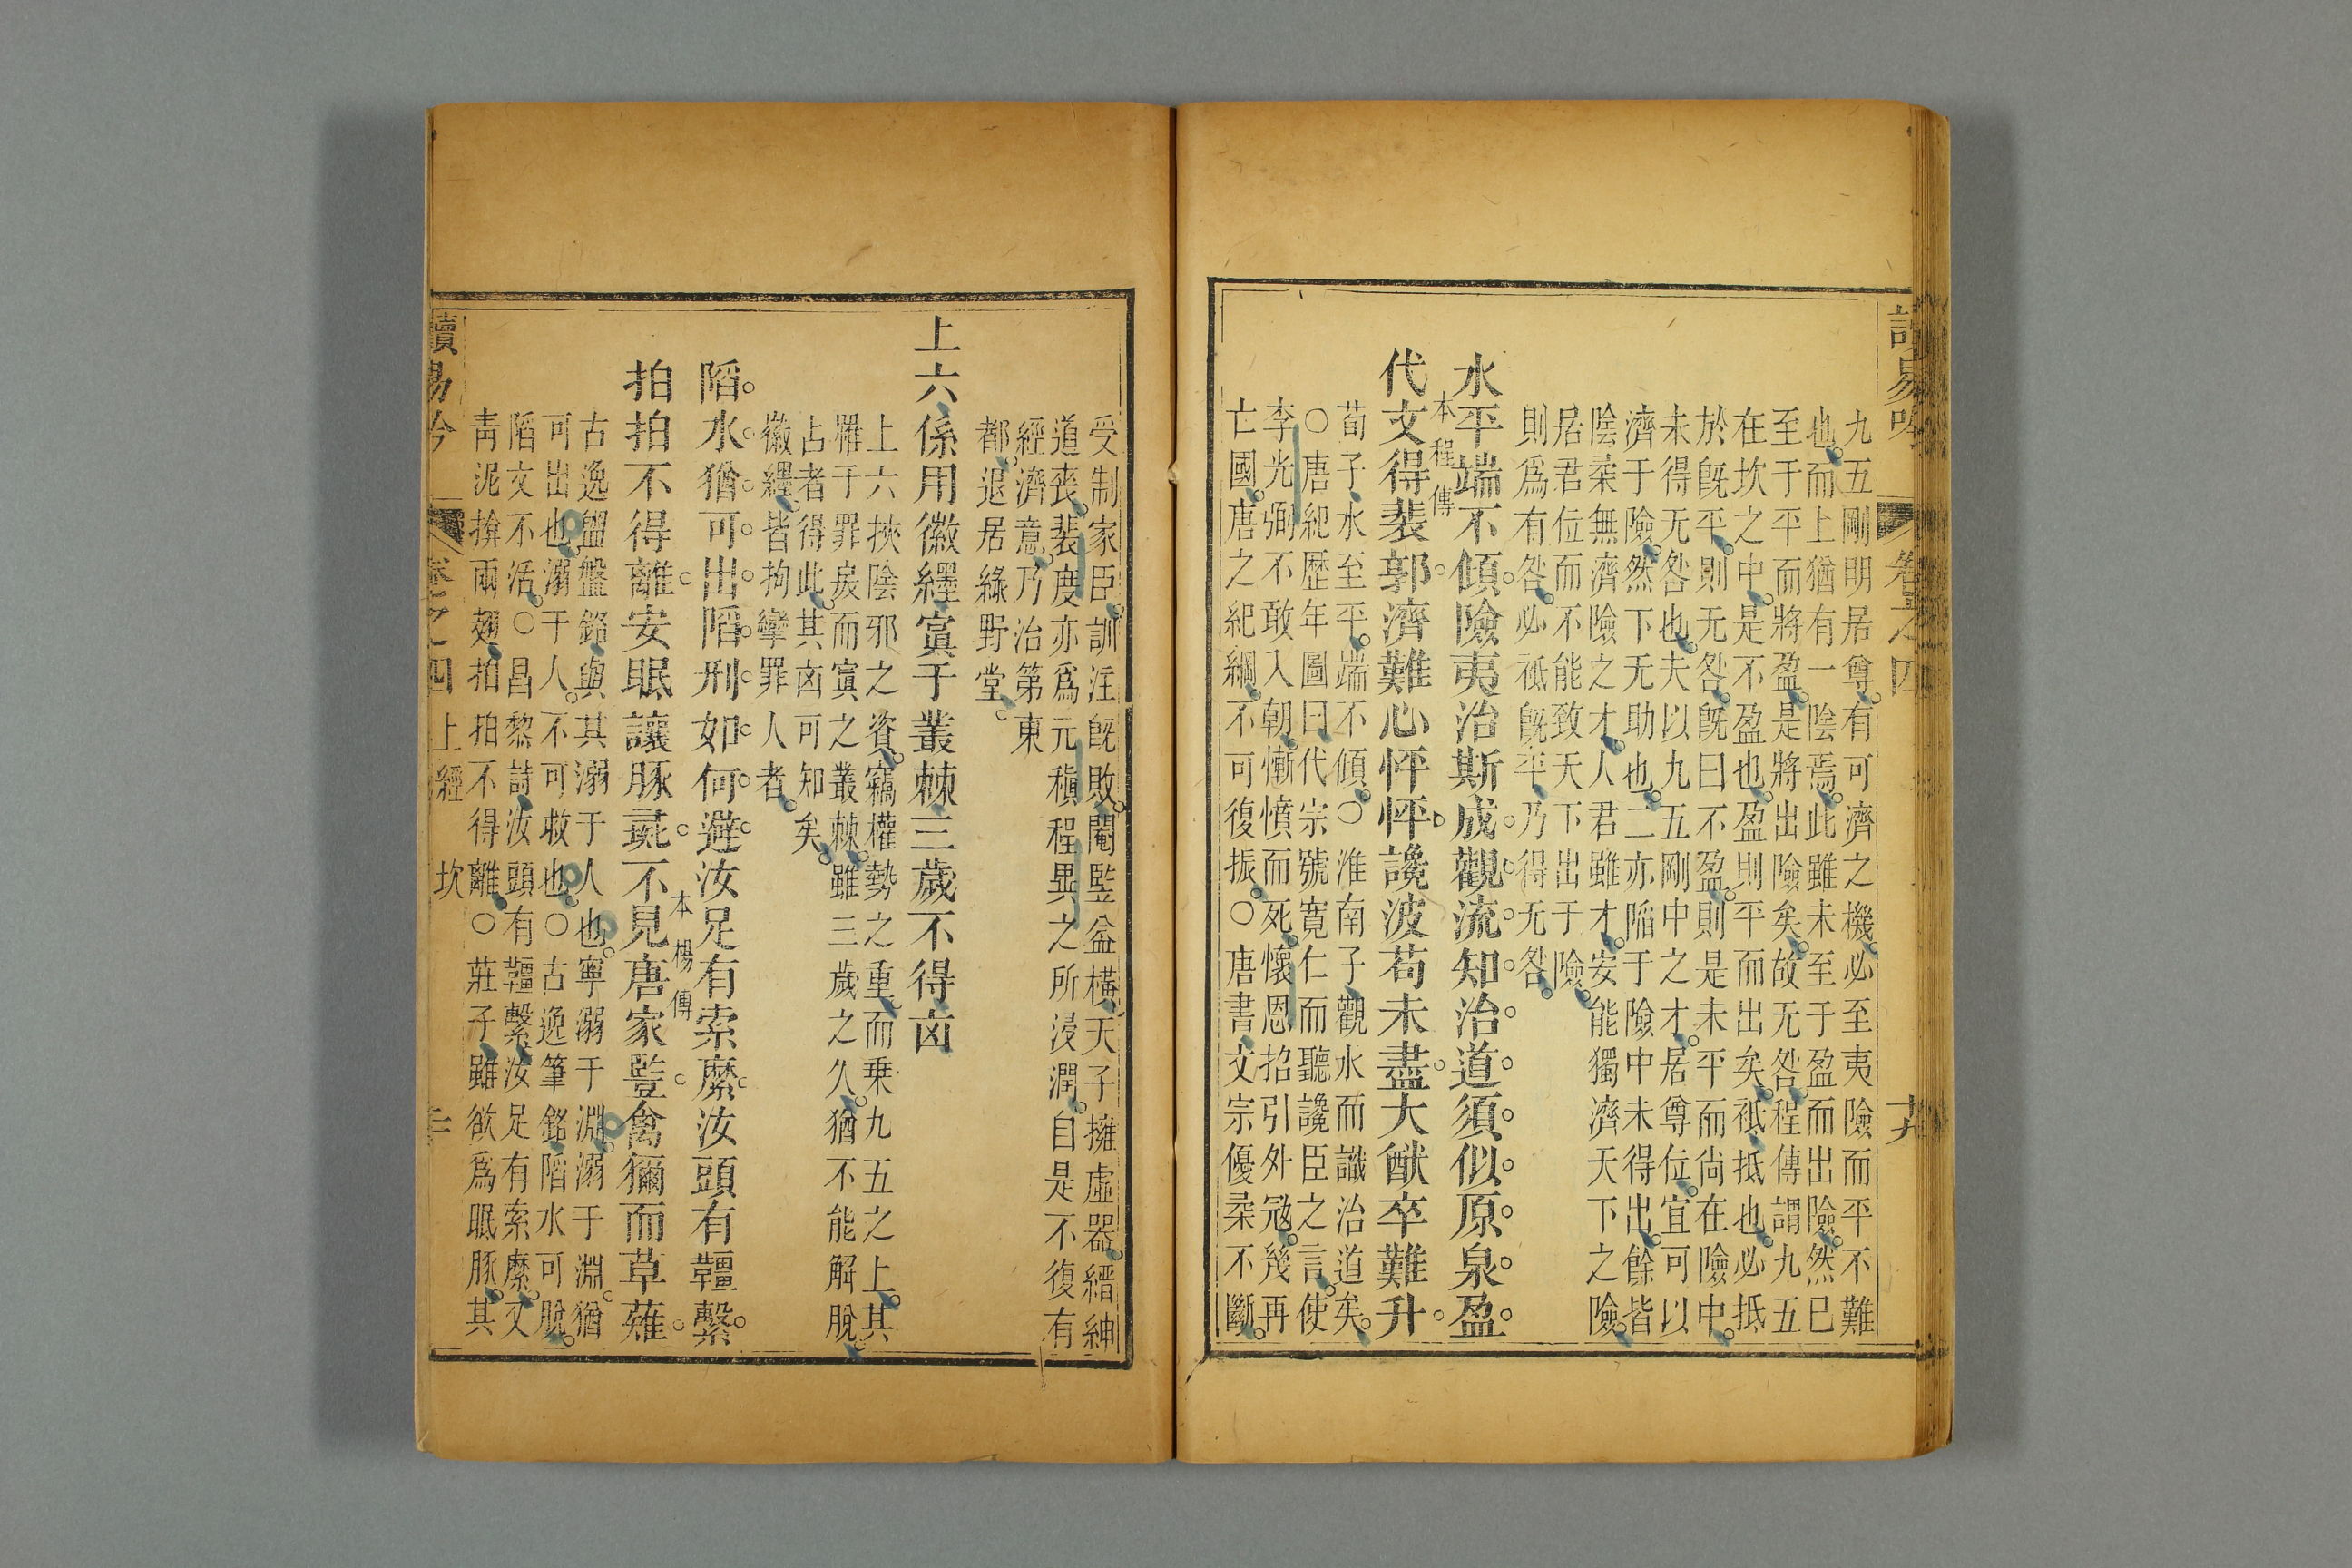 讀易吟 卷之四 十九
九五剛明居尊。有可濟之機。必至夷險而平不難
也。而上猶有一陰焉。此雖未至于盈而出險。然已
至于平而將盈。是將出險矣。故无咎。程傳謂九五
在坎之中。是不盈也。盈則平而出矣。祗抵也。必抵
於旣平。則无咎。旣曰不盈。則是未平而尙在險中。
未得无咎也。夫以九五剛中之才。居尊位。宜可以
濟于險。然下无助也。二亦陷于險中未得出。餘皆
陰柔無濟險之才。人君雖才。安能獨濟天下之險。
居君位而不能致天下出于險。
則爲有咎。必祗旣平。乃得无咎。
水平端不傾。險夷治斯成。觀流知治道。須似原泉盈。
代文得裴郭。濟難心怦怦。讒波苟未盡。大猷卒難升。
本程傳
荀子。水至平。端不傾。○淮南子。觀水而識治道矣。
○唐紀歷年圖曰。代宗號寬仁而聽讒臣之言。使
李光弼不敢入朝。慚憤而死。懷恩招引外冦。幾再
亡國。唐之紀綱。不可復振。○唐書。文宗優柔不斷。
受制家臣。訓注旣敗。閹監益橫。天子擁虛器。縉紳
道喪。裴度亦爲元稹程异之所浸潤。自是不復有
經濟意。乃治第東
都。退居綠野堂。
上六係用徽纆寘于叢棘三歲不得凶
上六挾陰邪之資。竊權勢之重。而乗九五之上。其
罹于罪戾而寘之叢棘。雖三歲之久。猶不能解脫。
占者得此。其凶可知矣。
徽纆。皆拘攣罪人者。
陷水猶可出。陷刑如何避。汝足有索縻。汝頭有韁繫。
拍拍不得離。安眠讓豚彘。不見唐家豎。禽獮而草薙。
本楊傳
古逸盥盤銘。與其溺于人也。寧溺于淵。溺于淵。猶
可出也。溺于人。不可救也。○古逸筆銘。陷水可脫。
陷文不活。○昌黎詩。汝頭有韁繫。汝足有索縻。又
靑泥揜兩翅。拍拍不得離。○莊子。雖欲爲眠豚。其
讀易吟 卷之四 上經 坎 二十